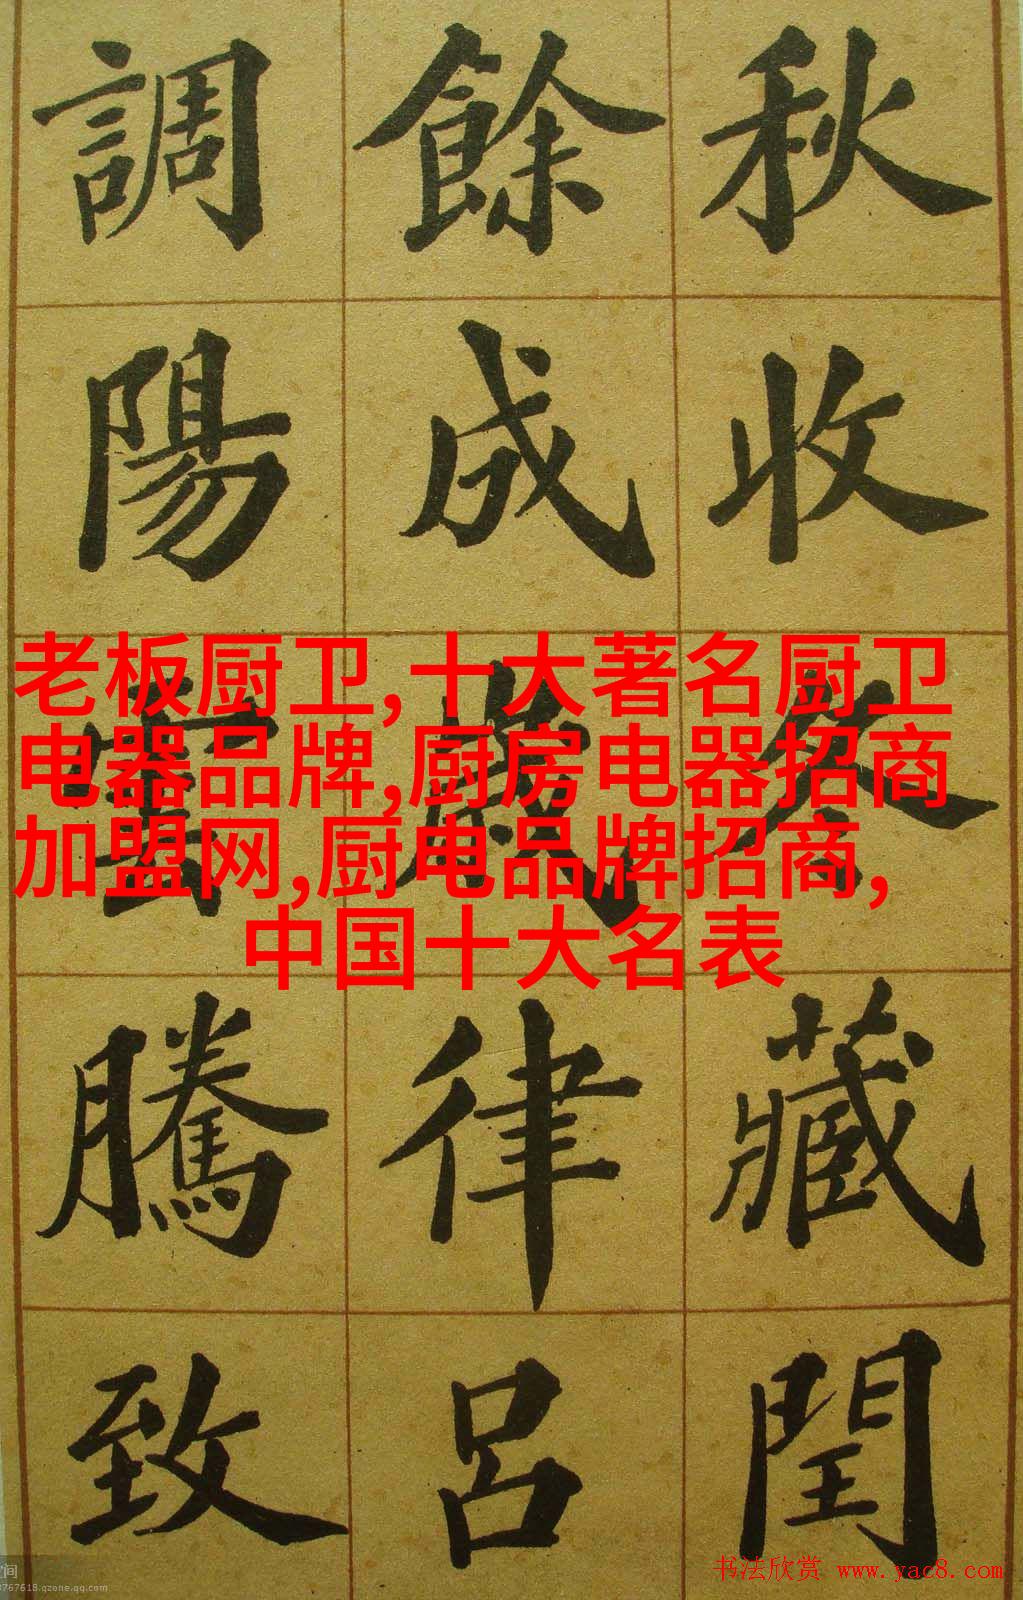 秋收冬藏閏
餘成歲律吕
調陽雲騰致
老板厨卫,十大著名厨卫
电器品牌,厨房电器招商
加盟网,厨电品牌招商,
中国十大名表
书法欣赏 www.yac8.com
空间
3767618.qzone.qq.com